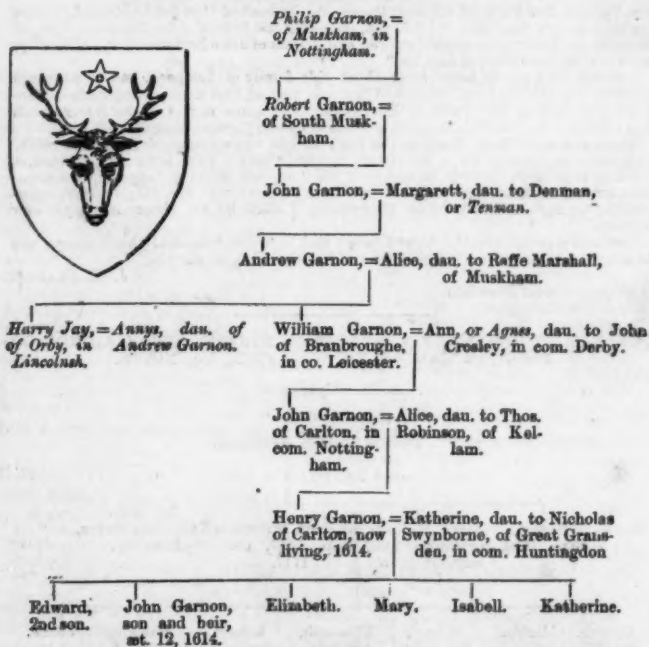 Philip Garnon,=
of Muskham, in
Nottingham.
Robert Garnon,=
of South Musk-
ham.
John Garnon,=Margarett, dau. to Denman,
or Tenman.
Andrew Garnon,=Alice, dau. to Raffe Marshall,
of Muskham.
Harry Jay,=Annys, dau. of
of Orby, in Andrew Garnon.
Lincolnsh.
William Garnon,=Ann, or Agnes, dau. to John
of Branbroughe, Crosley, in com. Derby.
in co. Leicester.
John Garnon,=Alice, dau. to Thos.
of Carlton, in Robinson, of Kel-
com. Notting- lam.
ham.
Henry Garnon,=Katherine, dau. to Nicholas
of Carlton, now Swynborne, of Great Grans-
living, 1614. den, in com. Huntingdon
Edward,
2nd son.
John Garnon,
son and heir,
æt. 12, 1614.
Elizabeth.
Mary.
Isabell.
Katherine.